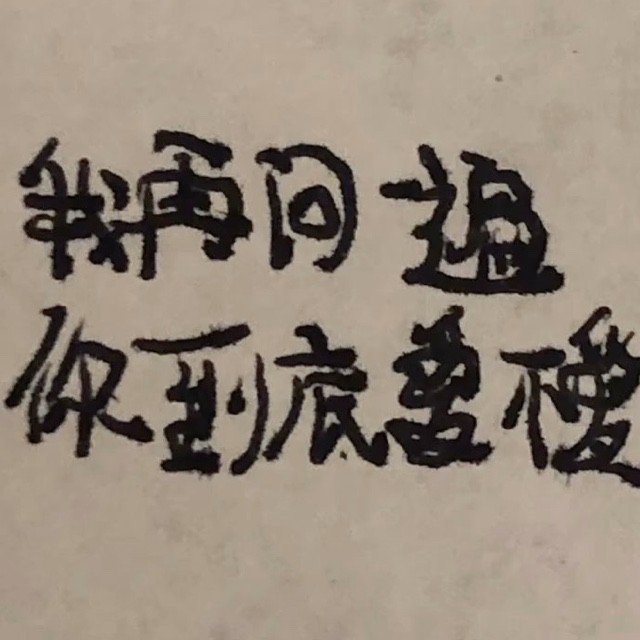 我再问一遍
你到底爱不爱